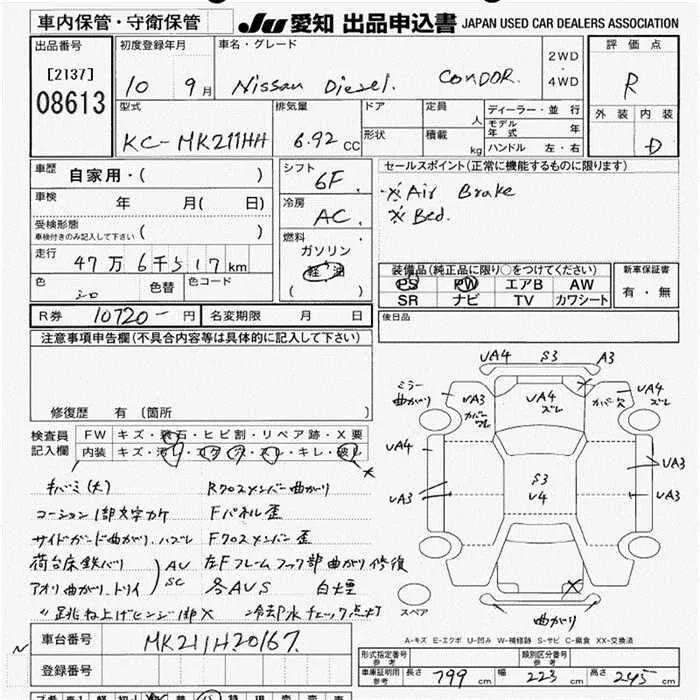 車内保管・守衛保管
JU 愛知 出品申込書 JAPAN USED CAR DEALERS ASSOCIATION
出品番号
[2137]
08613
初度登録年月
10 9月
車名・グレード
Nissan Diesel. CONDOR.
2WD
・
4WD
評価点
R
外装 内装
D
型式
KC-MK211HH
排気量
6.92 CC
ドア
形状
定員
人
積載
kg
ディーラー・並行
モデル年式 年
ハンドル 左・右
車歴 自家用・( )
車検 年 月( 日)
受検形態
車検付きのみ記入して下さい ( )
走行 47万6千517km
色 シロ 色替 色コード
シフト
6F.
冷房
AC.
燃料
ガソリン
軽油
( )
セールスポイント(正常に機能するものに限ります)
※Air Brake
※Bed.
装備品(純正品に限り○をつけてください)
PS PW エアB AW
SR ナビ TV カワシート
新車保証書
有・無
後日品
R券 10720- 円 名変期限 月 日
注意事項申告欄(不具合内容等は具体的に記入して下さい)
修復歴 有 [箇所 ]
検査員
記入欄
FW キズ・飛石・ヒビ割・リペア跡・X要
内装 キズ・汚レ・コゲ・穴・スレ・キレ・破レ
キバミ(大) Rクロスメンバー曲がり
コーション1部文字カケ Fパネル歪
サイドガード曲がり.ハズレ Fクロスメンバー歪
荷台床鉄バリ AU 左Fフレームフック部曲がり修復
アオリ曲がり.ドライ SC 各AUS 白煙
〃跳ね上げヒンジ1部× 冷却水チェック点灯
UA4 S3 A3
ミラー曲がり
UA3
カバーワレ
UA4
ズレ
カバー欠
UA4
ズレ
UA4
UA3
S3
U4
UA3
UA3
スペア
曲がり
A-キズ E-エクボ U-凹み W-補修跡 S-サビ C-腐食 XX-交換済
車台番号 MK211H20167.
登録番号
形式指定番号
参考
類別区分番号
参考
車庫証明用
参考
長さ 799 cm 幅 223 cm 高さ 245 cm